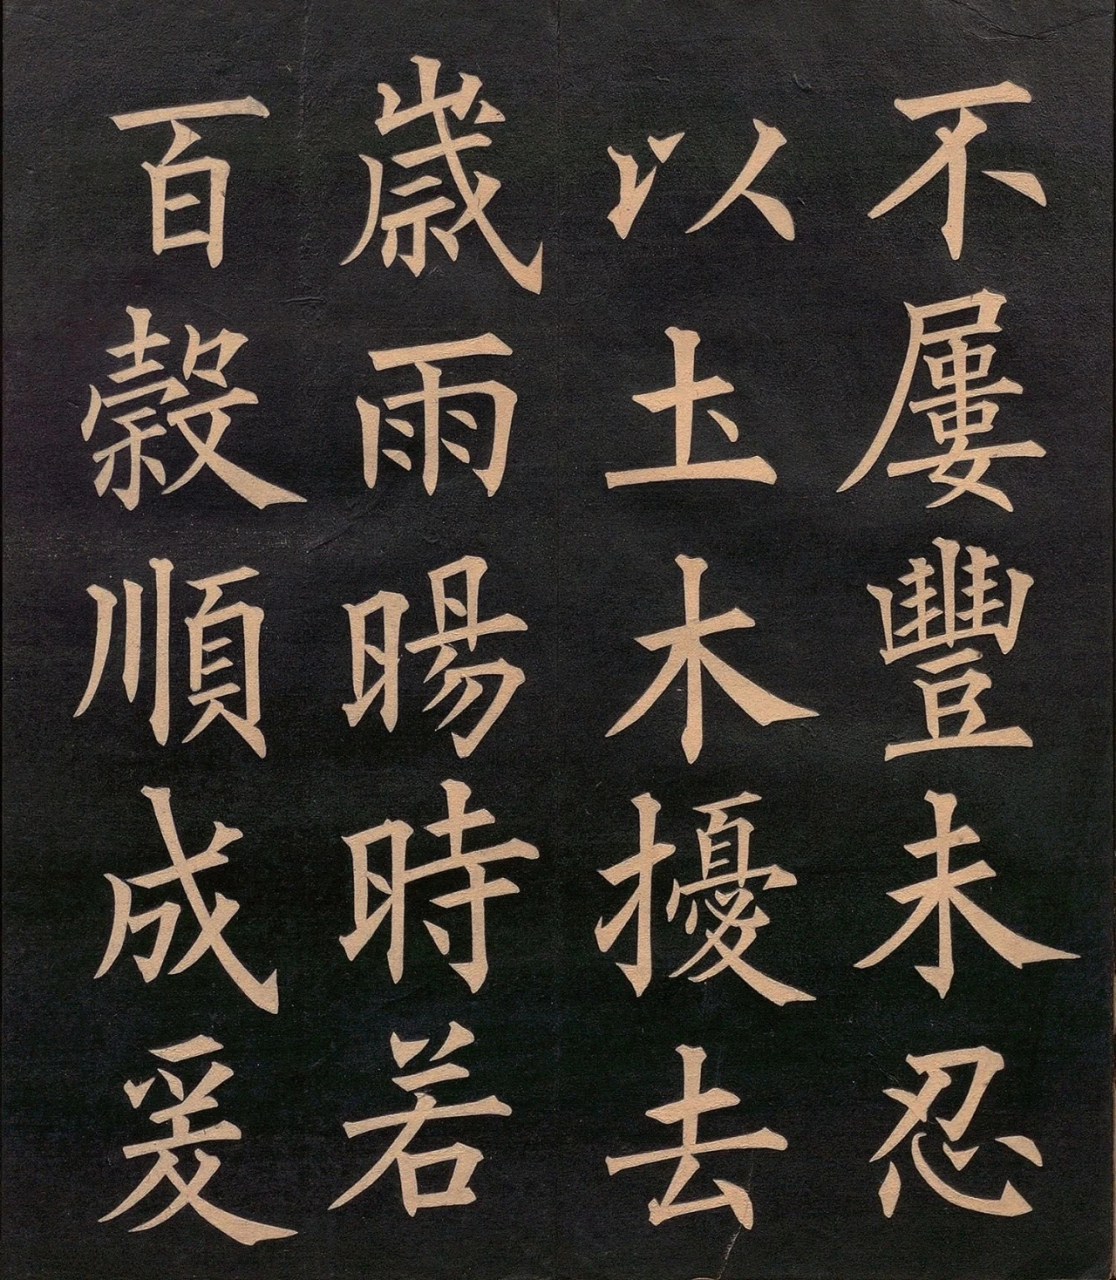 不屢豐未忍
以土木擾去
歲雨暘時若
百穀順成爰